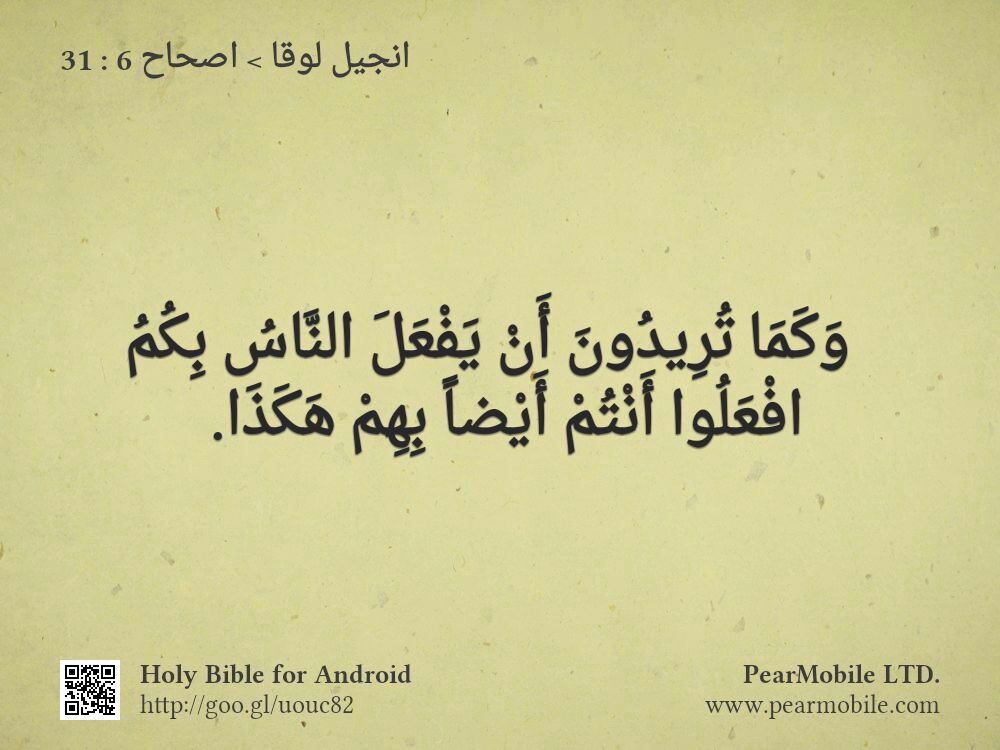 انجيل لوقا > اصحاح 6 : 31
وَكَمَا تُرِيدُونَ أَنْ يَفْعَلَ النَّاسُ بِكُمُ
افْعَلُوا أَنْتُمْ أَيْضاً بِهِمْ هَكَذَا.
Holy Bible for Android
http://goo.gl/uouc82
PearMobile LTD.
www.pearmobile.com